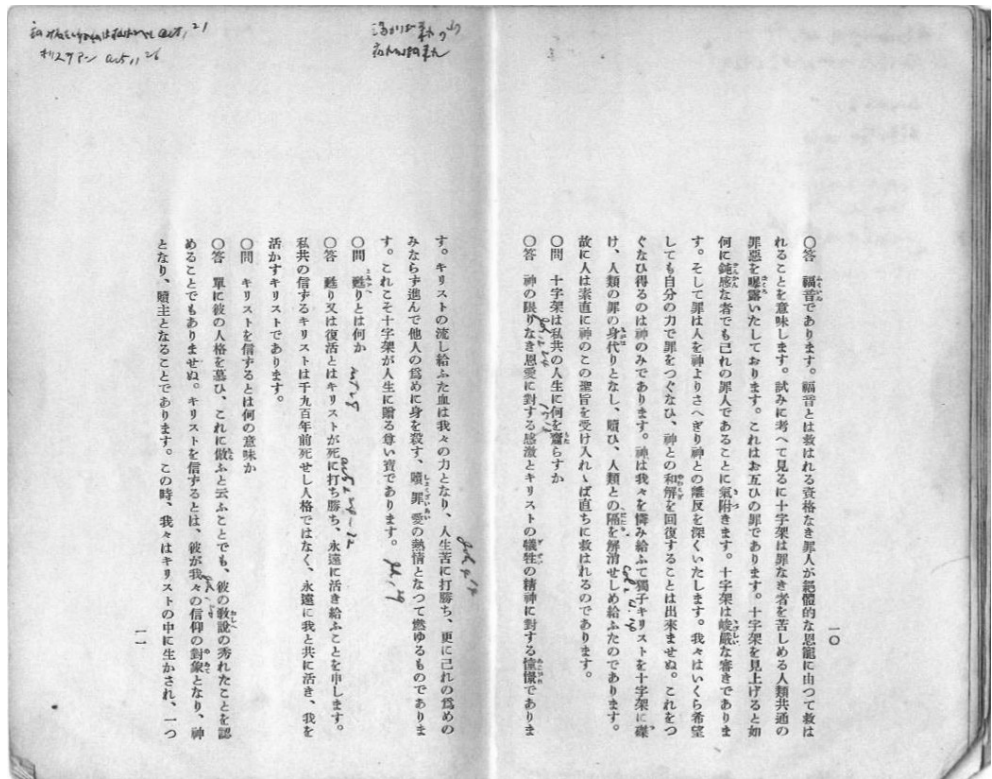 〇答 福音であります。福音とは救はれる資格なき罪人が絕體的な恩寵に由つて救は
れることを意味します。試みに考へて見るに十字架は罪なき者を苦しめる人類共通の
罪惡を曝露いたしております。これはお互ひの罪であります。十字架を見上げると如
何に鈍感な者でも己れの罪人であることに氣附きます。十字架は峻嚴な審きでありま
す。そして罪は人を神よりさへぎり神との離反を深くいたします。我々はいくら希望
しても自分の力で罪をつぐなひ、神との和解を回復することは出來ませぬ。これをつ
ぐなひ得るのは神のみであります。神は我々を憐み給ふて獨子キリストを十字架に磔
け、人類の罪の身代りとなし、贖ひ、人類との隔を解消せしめ給ふたのであります。
故に人は素直に神のこの聖旨を受け入れゝば直ちに救はれるのであります。
〇問 十字架は私共の人生に何を齎らすか
〇答 神の限りなき恩愛に對する感激とキリストの犧牲の精神に對する憧憬でありま
一〇
す。キリストの流し給ふた血は我々の力となり、人生苦に打勝ち、更に己れの爲めの
みならず進んで他人の爲めに身を殺す、贖罪愛の熱情となつて燃ゆるものでありま
す。これこそ十字架が人生に贈る尊い寶であります。
〇問 甦りとは何か
〇答 甦り又は復活とはキリストが死に打ち勝ち、永遠に活き給ふことを申します。
私共の信ずるキリストは千九百年前死せし人格ではなく、永遠に我と共に活き、我を
活かすキリストであります。
〇問 キリストを信ずるとは何の意味か
〇答 單に彼の人格を慕ひ、これに傚ふと云ふことでも、彼の敎說の秀れたことを認
めることでもありませぬ。キリストを信ずるとは、彼が我々の信仰の對象となり、神
となり、贖主となることであります。この時、我々はキリストの中に生かされ、一つ
一一